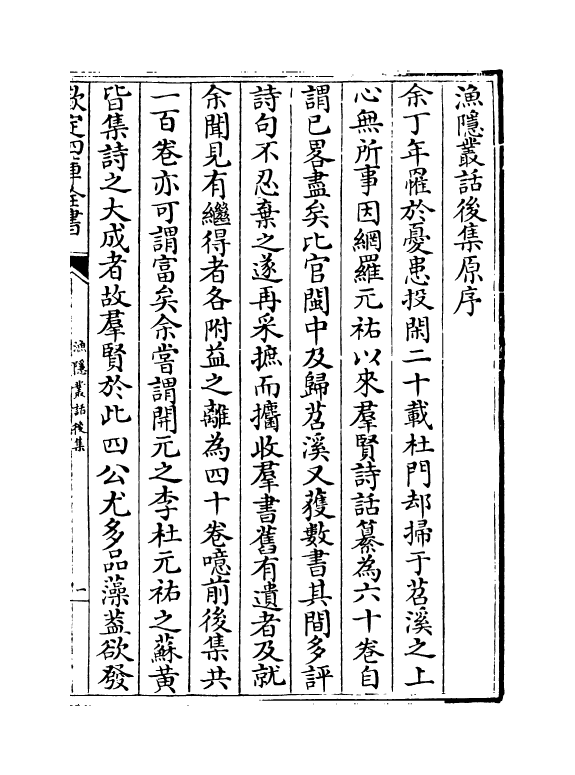 漁隱叢話後集原序
余丁年罹於憂患投閑二十載杜門却掃于苕溪之上
心無所事因網羅元祐以來羣賢詩話纂為六十卷自
謂已畧盡矣比官閩中及歸苕溪又獲數書其間多評
詩句不忍棄之遂再采摭而攟收羣書舊有遺者及就
余聞見有繼得者各附益之離為四十卷噫前後集共
一百卷亦可謂富矣余嘗謂開元之李杜元祐之蘇黃
皆集詩之大成者故羣賢於此四公尤多品藻葢欲發
欽定四庫全書
漁隱叢話後集
一